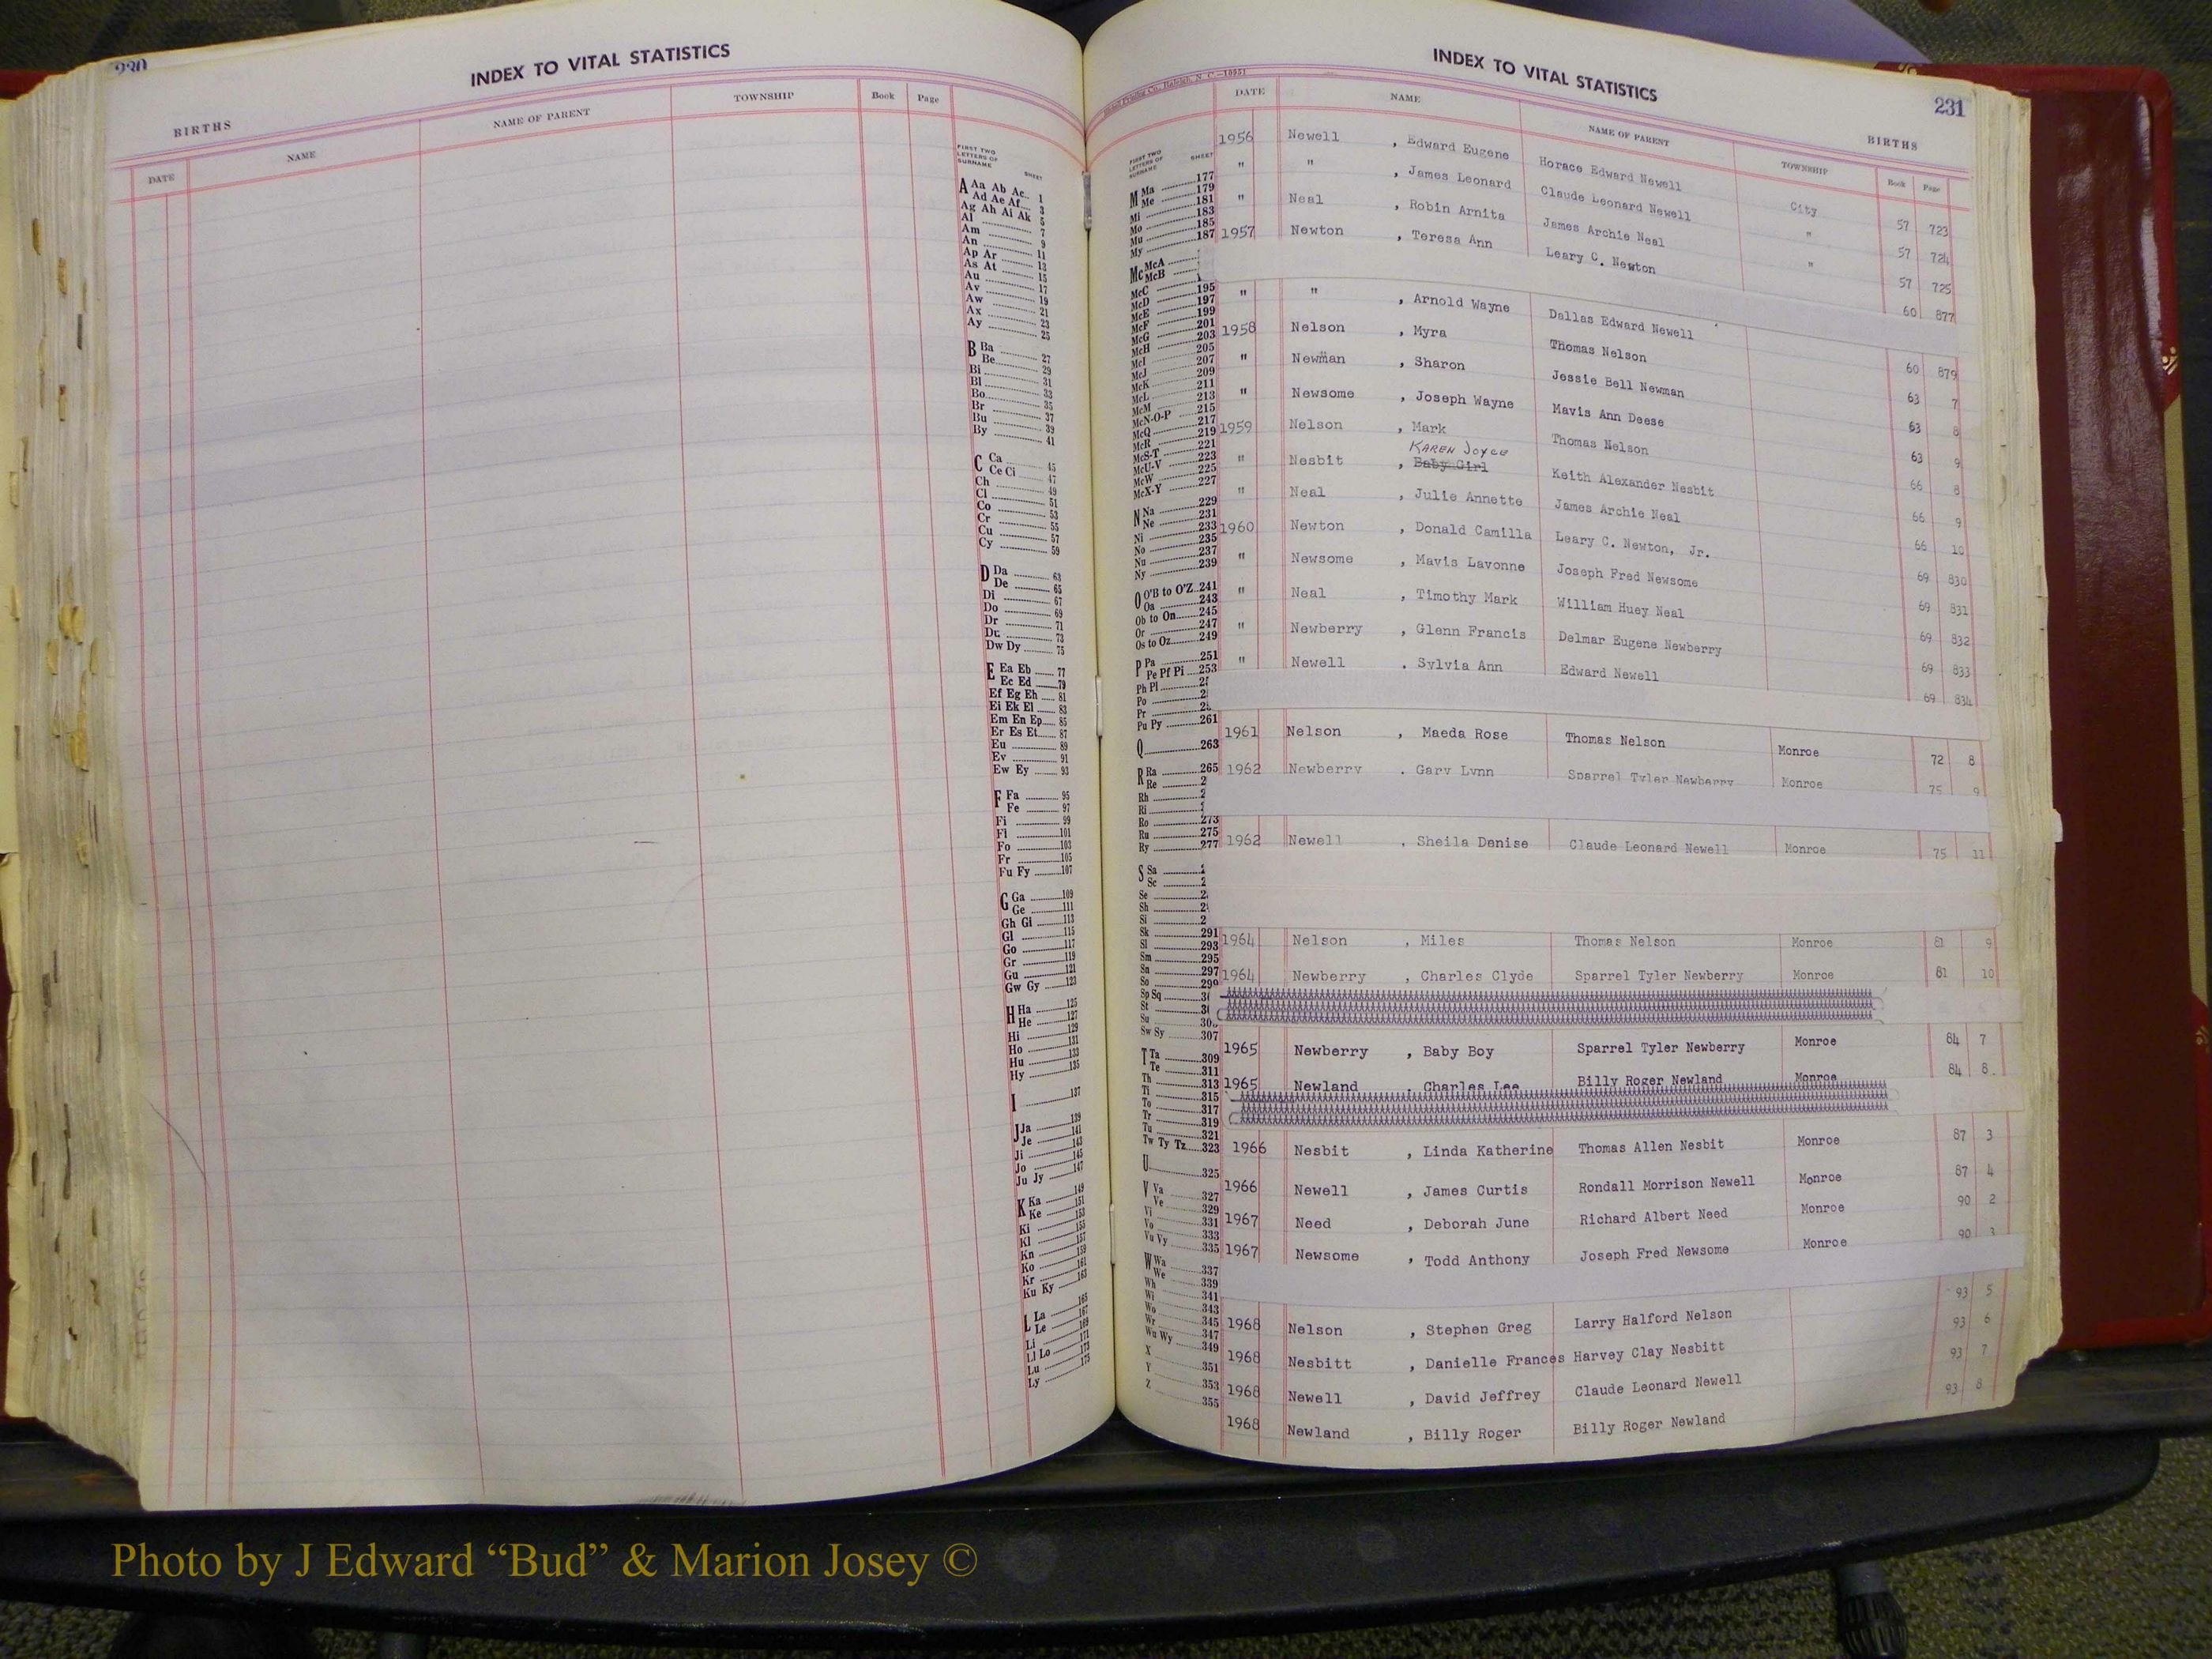 230
INDEX TO VITAL STATISTICS
BIRTHS
DATE NAME NAME OF PARENT TOWNSHIP Book Page
FIRST TWO
LETTERS OF
SURNAME SHEET
A Aa Ab Ac 1
Ad Ae Af 3
Ag Ah Ai Ak 5
Al 7
Am 9
An 11
Ap Ar 13
As At 15
Au 17
Av 19
Aw 21
Ax 23
Ay 25
B Ba 27
Be 29
Bi 31
Bl 33
Bo 35
Br 37
Bu 39
By 41
C Ca 45
Ce Ci 47
Ch 49
Cl 51
Co 53
Cr 55
Cu 57
Cy 59
D Da 63
De 65
Di 67
Do 69
Dr 71
Du 73
Dw Dy 75
E Ea Eb 77
Ec Ed 79
Ef Eg Eh 81
Ei Ek El 83
Em En Ep 85
Er Es Et 87
Eu 89
Ev 91
Ew Ey 93
F Fa 95
Fe 97
Fi 99
Fl 101
Fo 103
Fr 105
Fu Fy 107
G Ga 109
Ge 111
Gh Gi 113
Gl 115
Go 117
Gr 119
Gu 121
Gw Gy 123
H Ha 125
He 127
Hi 129
Ho 131
Hu 133
Hy 135
I 137
J Ja 139
Je 141
Ji 143
Jo 145
Ju Jy 147
K Ka 149
Ke 151
Ki 153
Kl 155
Kn 157
Ko 159
Kr 161
Ku Ky 163
L La 165
Le 167
Li 169
Ll Lo 171
Lu 173
Ly 175
INDEX TO VITAL STATISTICS
231
BIRTHS
DATE NAME NAME OF PARENT TOWNSHIP Book Page
FIRST TWO
LETTERS OF
SURNAME SHEET
M Ma 177
Me 179
Mi 181
Mo 183
Mu 185
My 187
Mc McA
McB
McC 195
McD 197
McE 199
McF 201
McG 203
McH 205
McI 207
McJ 209
McK 211
McL 213
McM 215
McN-O-P 217
McQ 219
McR 221
McS-T 223
McU-V 225
McW 227
McX-Y
N Na 229
Ne 231
Ni 233
No 235
Nu 237
Ny 239
O O'B to O'Z 241
Oa 243
Ob to On 245
Or 247
Os to Oz 249
P Pa 251
Pe Pf Pi 253
Ph Pl
Po
Pr
Pu Py 261
Q 263
R Ra 265
Re
Rh
Ri
Ro 273
Ru 275
Ry 277
S Sa
Sc
Se
Sh
Si
Sk 291
Sl 293
Sm 295
Sn 297
So 299
Sp Sq
St
Su
Sw Sy 307
T Ta 309
Te 311
Th 313
Ti 315
To 317
Tr 319
Tu 321
Tw Ty Tz 323
U 325
V Va 327
Ve 329
Vi 331
Vo 333
Vu Vy 335
W Wa 337
We 339
Wh 341
Wi 343
Wo 345
Wr 347
Wu Wy 349
X 351
Y 353
Z 355
1956 Newell , Edward Eugene Horace Edward Newell City 57 723
" " , James Leonard Claude Leonard Newell " 57 724
" Neal , Robin Arnita James Archie Neal " 57 725
1957 Newton , Teresa Ann Leary C. Newton 60 877
" " , Arnold Wayne Dallas Edward Newell 60 879
1958 Nelson , Myra Thomas Nelson 63 7
" Newman , Sharon Jessie Bell Newman 63 8
" Newsome , Joseph Wayne Mavis Ann Deese 63 9
1959 Nelson , Mark Thomas Nelson 66 8
KAREN JOYCE
" Nesbit , Baby Girl Keith Alexander Nesbit 66 9
" Neal , Julie Annette James Archie Neal 66 10
1960 Newton , Donald Camilla Leary C. Newton, Jr. 69 830
" Newsome , Mavis Lavonne Joseph Fred Newsome 69 831
" Neal , Timothy Mark William Huey Neal 69 832
" Newberry , Glenn Francis Delmar Eugene Newberry 69 833
" Newell , Sylvia Ann Edward Newell 69 834
1961 Nelson , Maeda Rose Thomas Nelson Monroe 72 8
1962 Newberry , Gary Lynn Sparrel Tyler Newberry Monroe 75 9
1962 Newell , Sheila Denise Claude Leonard Newell Monroe 75 11
1964 Nelson , Miles Thomas Nelson Monroe 81 9
1964 Newberry , Charles Clyde Sparrel Tyler Newberry Monroe 81 10
1965 Newberry , Baby Boy Sparrel Tyler Newberry Monroe 84 7
1965 Newland , Charles Lee Billy Roger Newland Monroe 84 8.
1966 Nesbit , Linda Katherine Thomas Allen Nesbit Monroe 87 3
1966 Newell , James Curtis Rondall Morrison Newell Monroe 87 4
1967 Need , Deborah June Richard Albert Need Monroe 90 2
1967 Newsome , Todd Anthony Joseph Fred Newsome Monroe 90 3
1968 Nelson , Stephen Greg Larry Halford Nelson 93 5
1968 Nesbitt , Danielle Frances Harvey Clay Nesbitt 93 6
1968 Newell , David Jeffrey Claude Leonard Newell 93 7
1968 Newland , Billy Roger Billy Roger Newland 93 8
Photo by J Edward “Bud” & Marion Josey ©